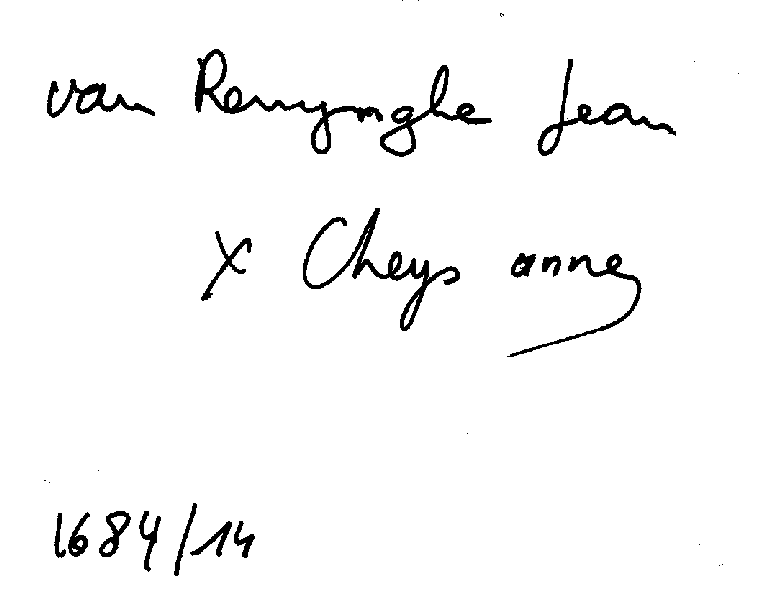 van Renynghe Jean
x Cheys anne
1684/14